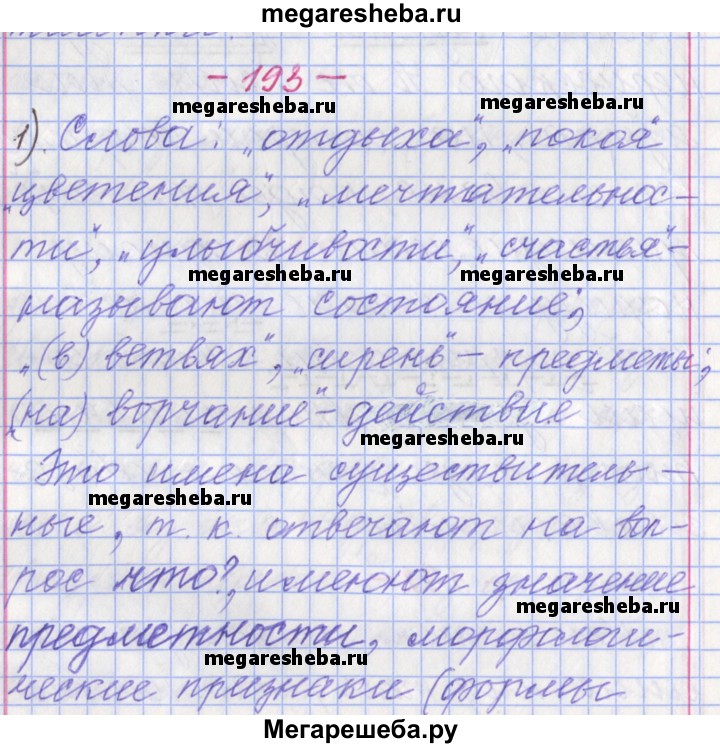 megaresheba.ru
- 193 -
megaresheba.ru
megaresheba.ru
1). Слова: „отдыха", „покоя"
„цветения", „мечтательнос-
ти", „улыбчивости", „счастья" -
megaresheba.ru
megaresheba.ru
называют состояние;
„(в) ветвях", „сирень" - предметы;
„(на) ворчание" - действие
megaresheba.ru
Это имена существитель-
megaresheba.ru
ные, т. к. отвечают на воп-
рос что?, имеют значение
megaresheba.ru
предметности, морфологи-
megaresheba.ru
ческие признаки (формы
Мегарешеба.ру